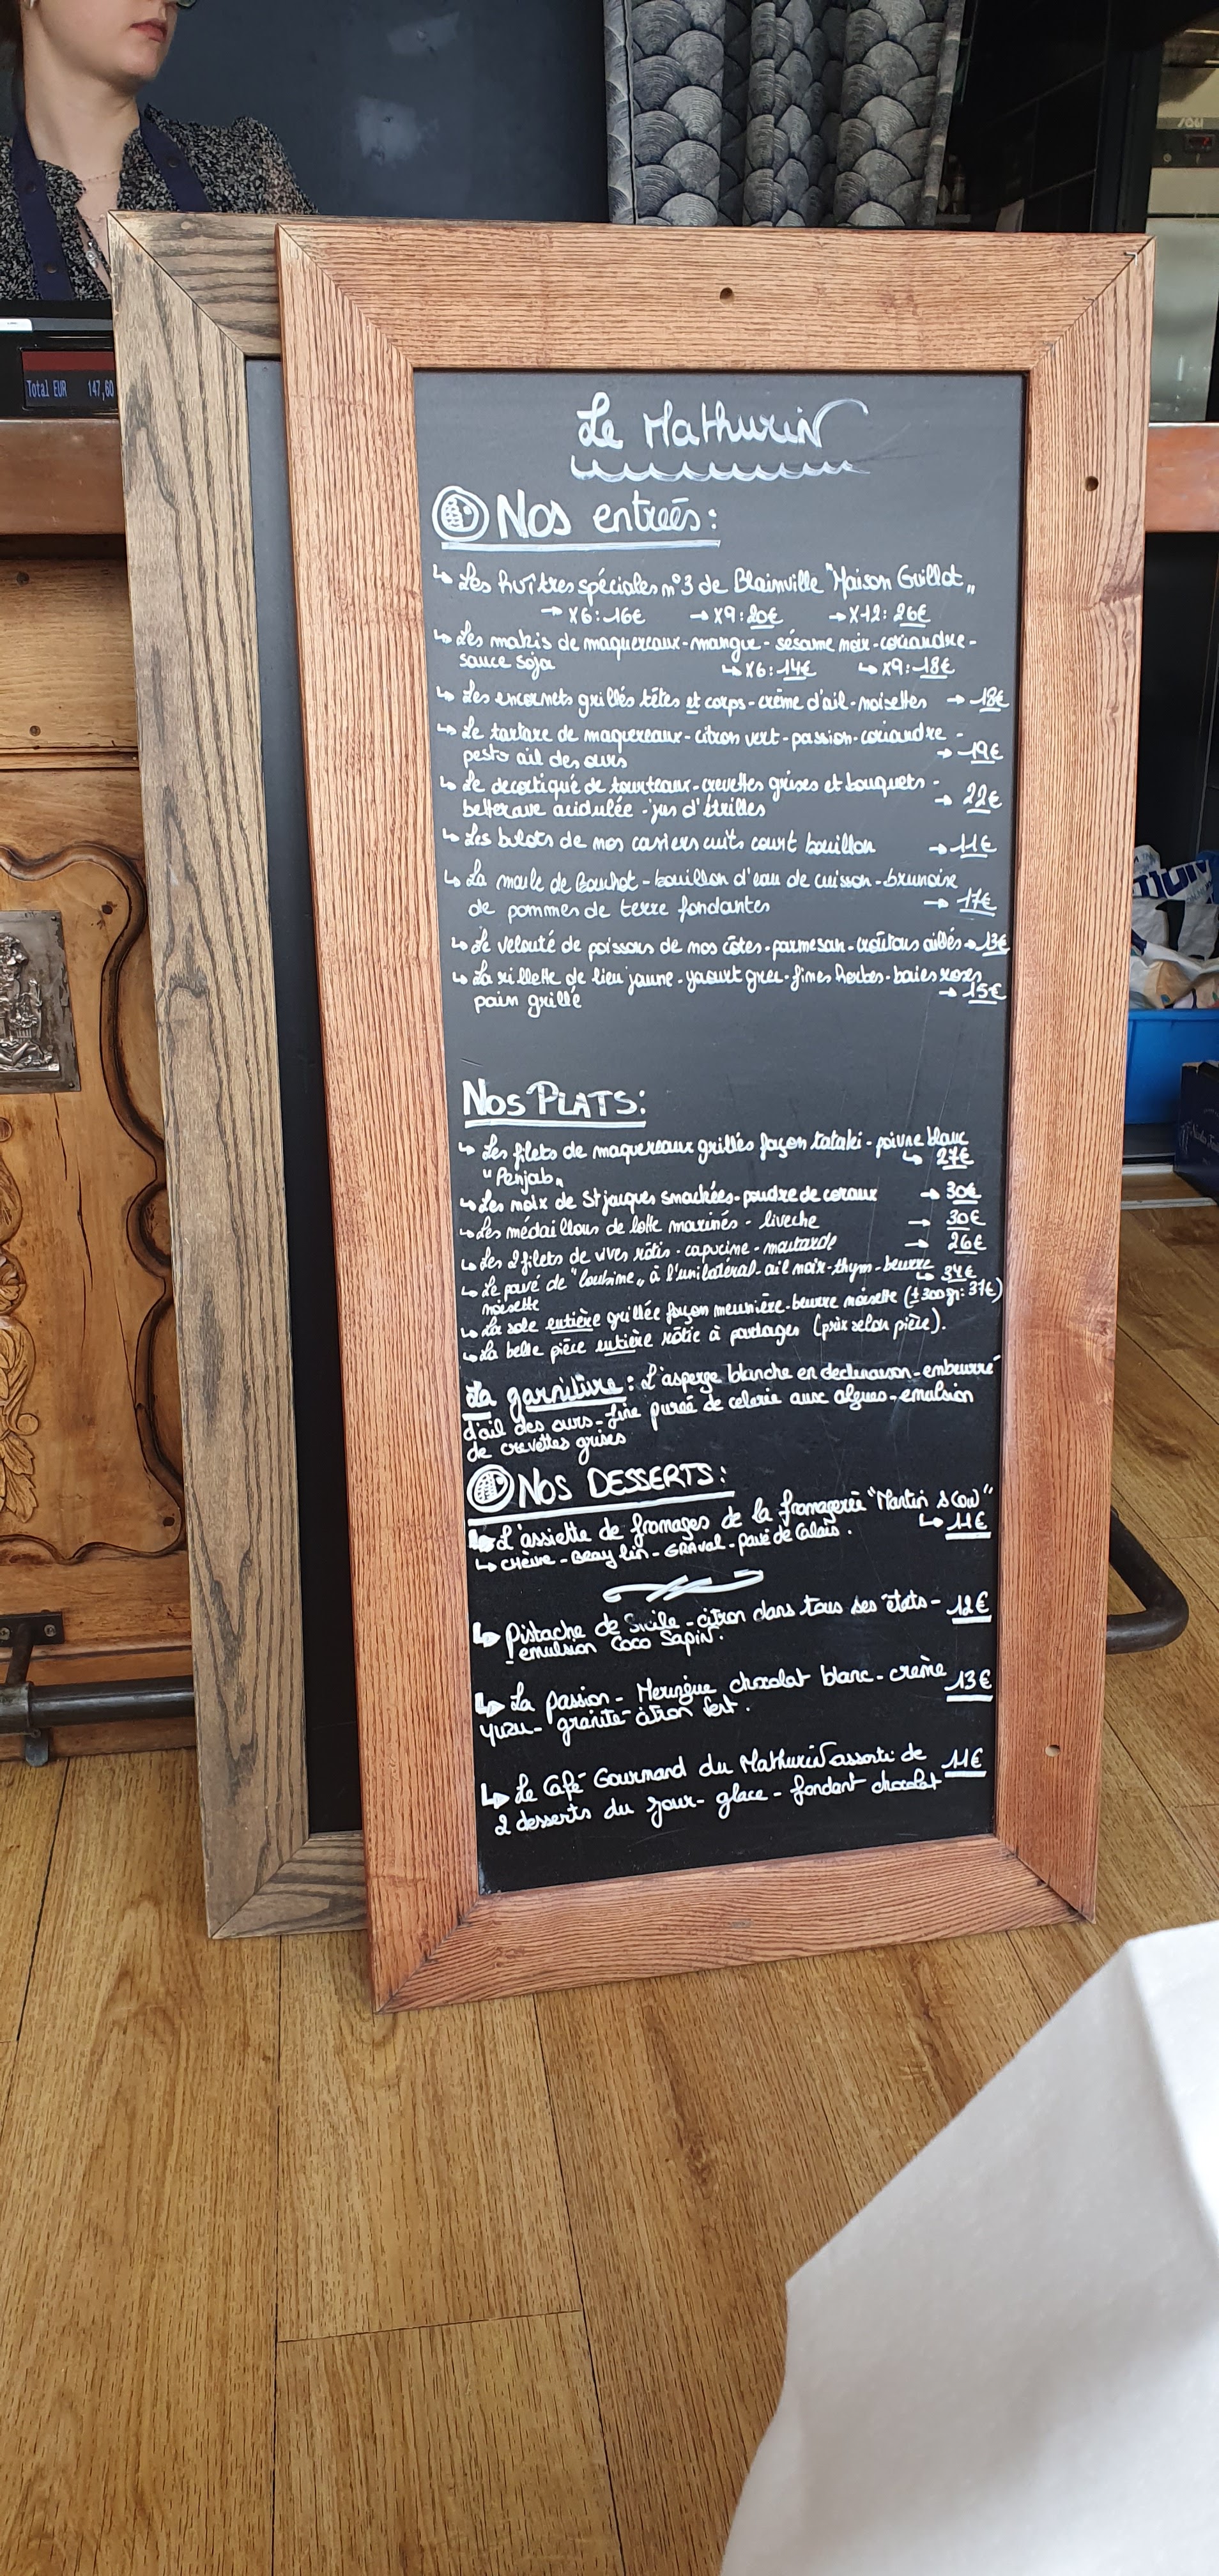 Total EUR 147,60
Le Mathurin
Nos entrées:
Les huîtres spéciales n°3 de Blainville "Maison Guillot"
→ X6: 16€ → X9: 20€ → X12: 26€
Les makis de maquereaux-mangue-sésame noir-coriandre-
sauce soja X6: 14€ X9: 18€
Les encornets grillés têtes et corps-crème d'ail-noisettes → 18€
Le tartare de maquereaux-citron vert-passion-coriandre-
pesto ail des ours → 19€
Le decortiqué de tourteaux-crevettes grises et bouquets-
betterave acidulée-jus d'étrilles → 22€
Les bulots de nos casiers cuits court bouillon → 11€
La moule de Bouchot-bouillon d'eau de cuisson-brunoise
de pommes de terre fondantes → 17€
Le velouté de poissons de nos côtes-parmesan-croûtons aillés → 13€
La rillette de lieu jaune-yaourt grec-fines herbes-baies roses
pain grillé → 15€
Nos PLATS:
Les filets de maquereaux grillés façon tataki-poivre blanc
"Penjab" 27€
Les noix de St jacques snackées-poudre de coraux → 30€
Les médaillons de lotte marinés-liveche → 30€
Les 2 filets de vives rôtis-capucine-moutarde → 26€
Le pavé de "loubine" à l'unilatéral-ail noir-thym-beurre
noisette 34€
La sole entière grillée façon meunière-beurre noisette (±300gr: 37€)
La belle pièce entière rôtie à partages (prix selon pièce).
La garniture: L'asperge blanche en declinaison-embeurré
d'ail des ours-fine pureé de celerie aux algues-emulsion
de crevettes grises
NOS DESSERTS:
L'assiette de fromages de la fromagerie "Martin 11€
CHèvre-Bray lin-GRAval-pavé de Calais.
Pistache de Sicile-citron dans tous ses états- 12€
emulsion Coco Sapin.
La passion-Meringue chocolat blanc-crème 13€
yuzu-granité citron Vert.
Le Café Gourmand du Mathurin assorti de 11€
2 desserts du jour-glace-fondant chocolat